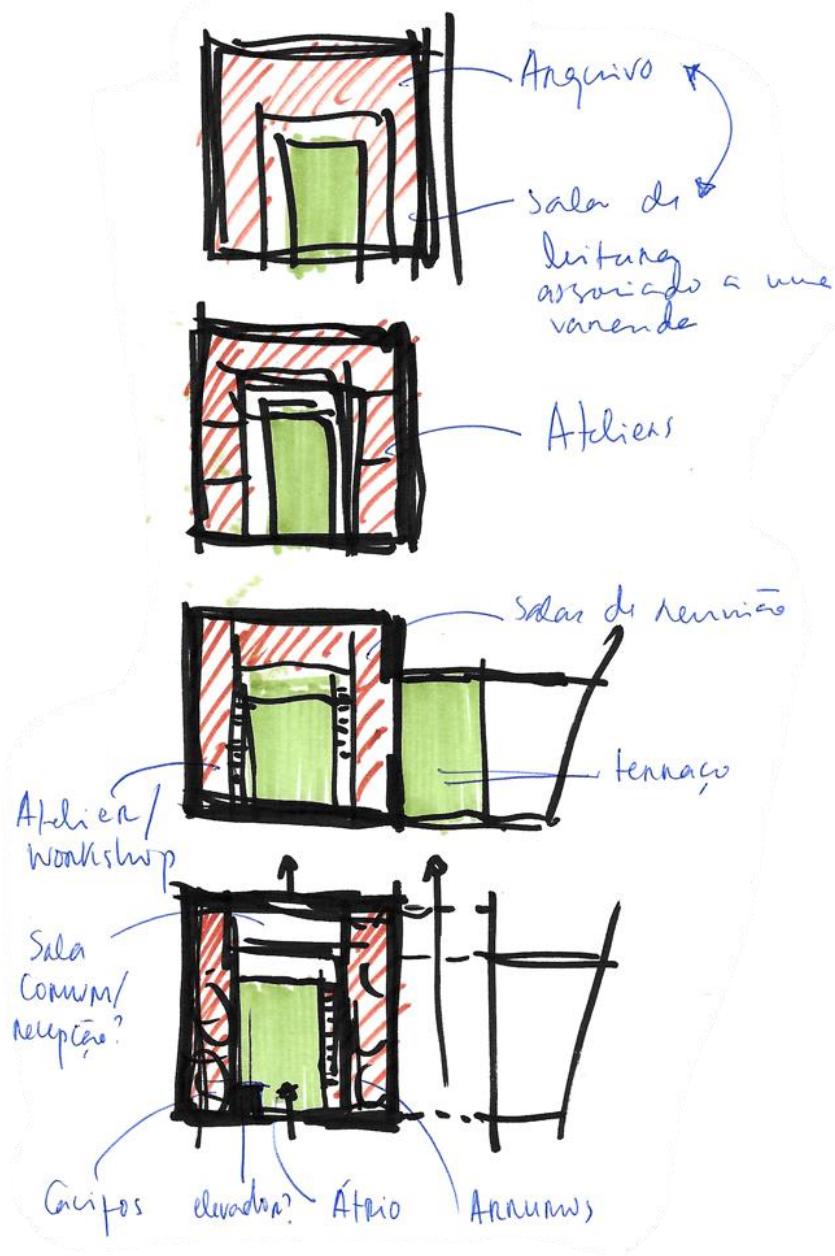 Arquivo
sala de
leitura
associado a uma
varanda
Ateliers
Salas de reunião
terraço
Atelier/
workshop
Sala
comum/
recepção?
Cacifos elevador? Átrio ARRUMOS